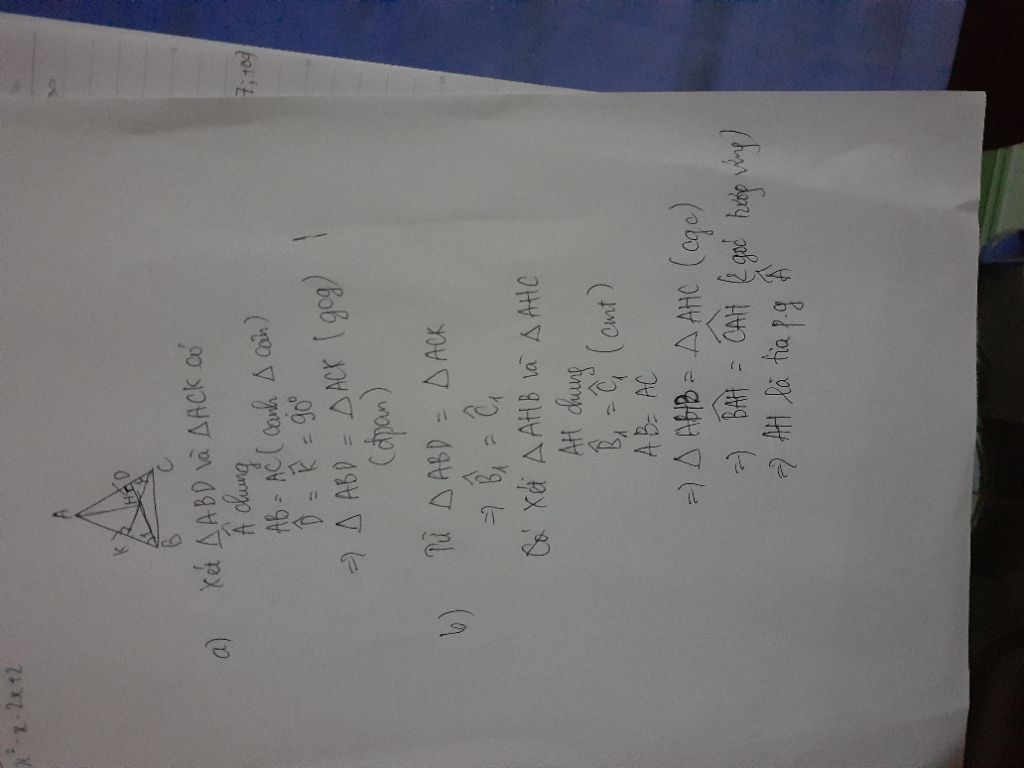 x² - x - 2x + 2
7; +∞)
A
K
H
D
B
C
a) Xét △ABD và △ACK có
Â chung
AB = AC (cạnh △ cân)
D̂ = K̂ = 90°
=> △ABD = △ACK (gcg)
(đpcm)
b) Từ △ABD = △ACK
=> B̂₁ = Ĉ₁
Có xét △AHB và △AHC
AH chung
B̂₁ = Ĉ₁ (cmt)
AB = AC
=> △AHB = △AHC (cgc)
=> B̂AH = ĈAH (2 góc tương ứng)
=> AH là tia p.g Â